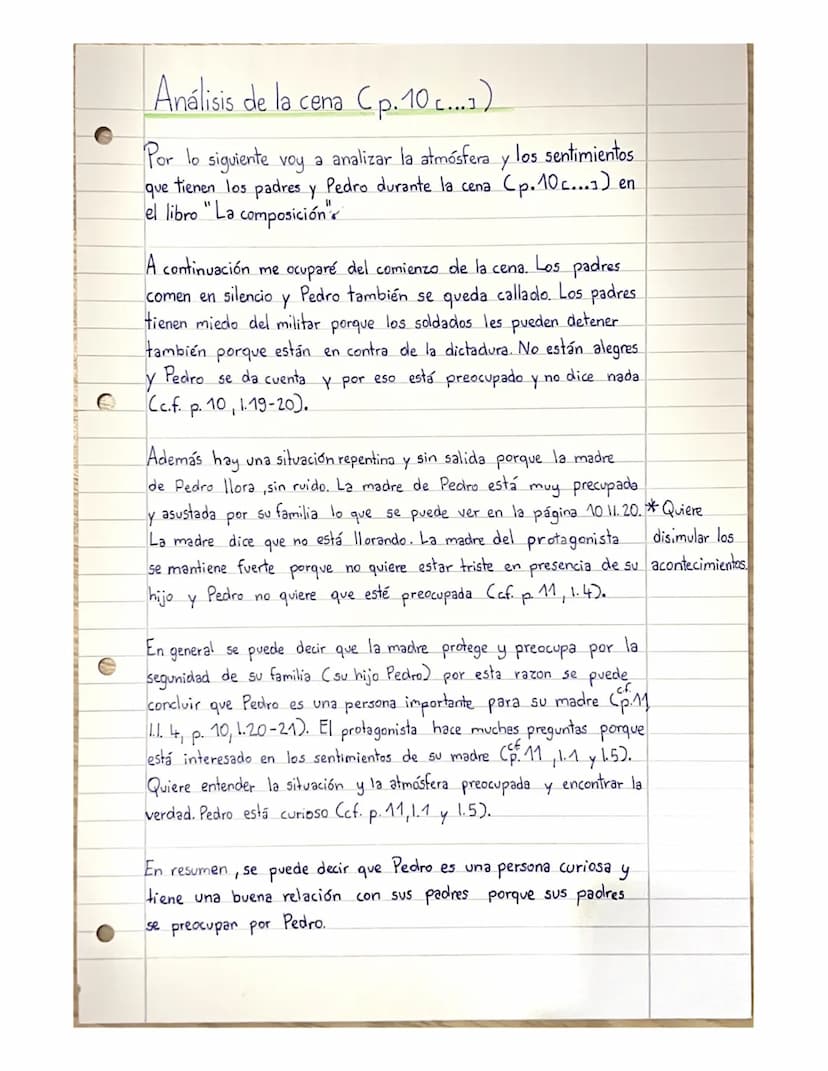 Análisis de la cena (p.10 [...])
Por lo siguiente voy a analizar la atmósfera y los sentimientos
que tienen los padres y Pedro durante la cena (p.10 [...]) en
el libro "La composición".
A continuación me ocuparé del comienzo de la cena. Los padres
comen en silencio y Pedro también se queda callado. Los padres
tienen miedo del militar porque los soldados les pueden detener
también porque están en contra de la dictadura. No están alegres
y Pedro se da cuenta y por eso está preocupado y no dice nada
(c.f. p. 10, l.19-20).
Además hay una situación repentina y sin salida porque la madre
de Pedro llora, sin ruido. La madre de Pedro está muy precupada
y asustada por su familia lo que se puede ver en la página 10 ll. 20. * Quiere
La madre dice que no está llorando. La madre del protagonista disimular los
se mantiene fuerte porque no quiere estar triste en presencia de su acontecimientos.
hijo y Pedro no quiere que esté preocupada (cf. p. 11, l.4).
En general se puede decir que la madre protege y preocupa por la
segunidad de su familia (su hijo Pedro) por esta razon se puede
concluir que Pedro es una persona importante para su madre (cf. p.11
l.l. 4, p. 10, l.20-21). El protagonista hace muchas preguntas porque
está interesado en los sentimientos de su madre (cf. p. 11, l.1 y l.5).
Quiere entender la situación y la atmósfera preocupada y encontrar la
verdad. Pedro está curioso (cf. p. 11, l.1 y l.5).
En resumen, se puede decir que Pedro es una persona curiosa y
tiene una buena relación con sus padres porque sus padres
se preocupan por Pedro.